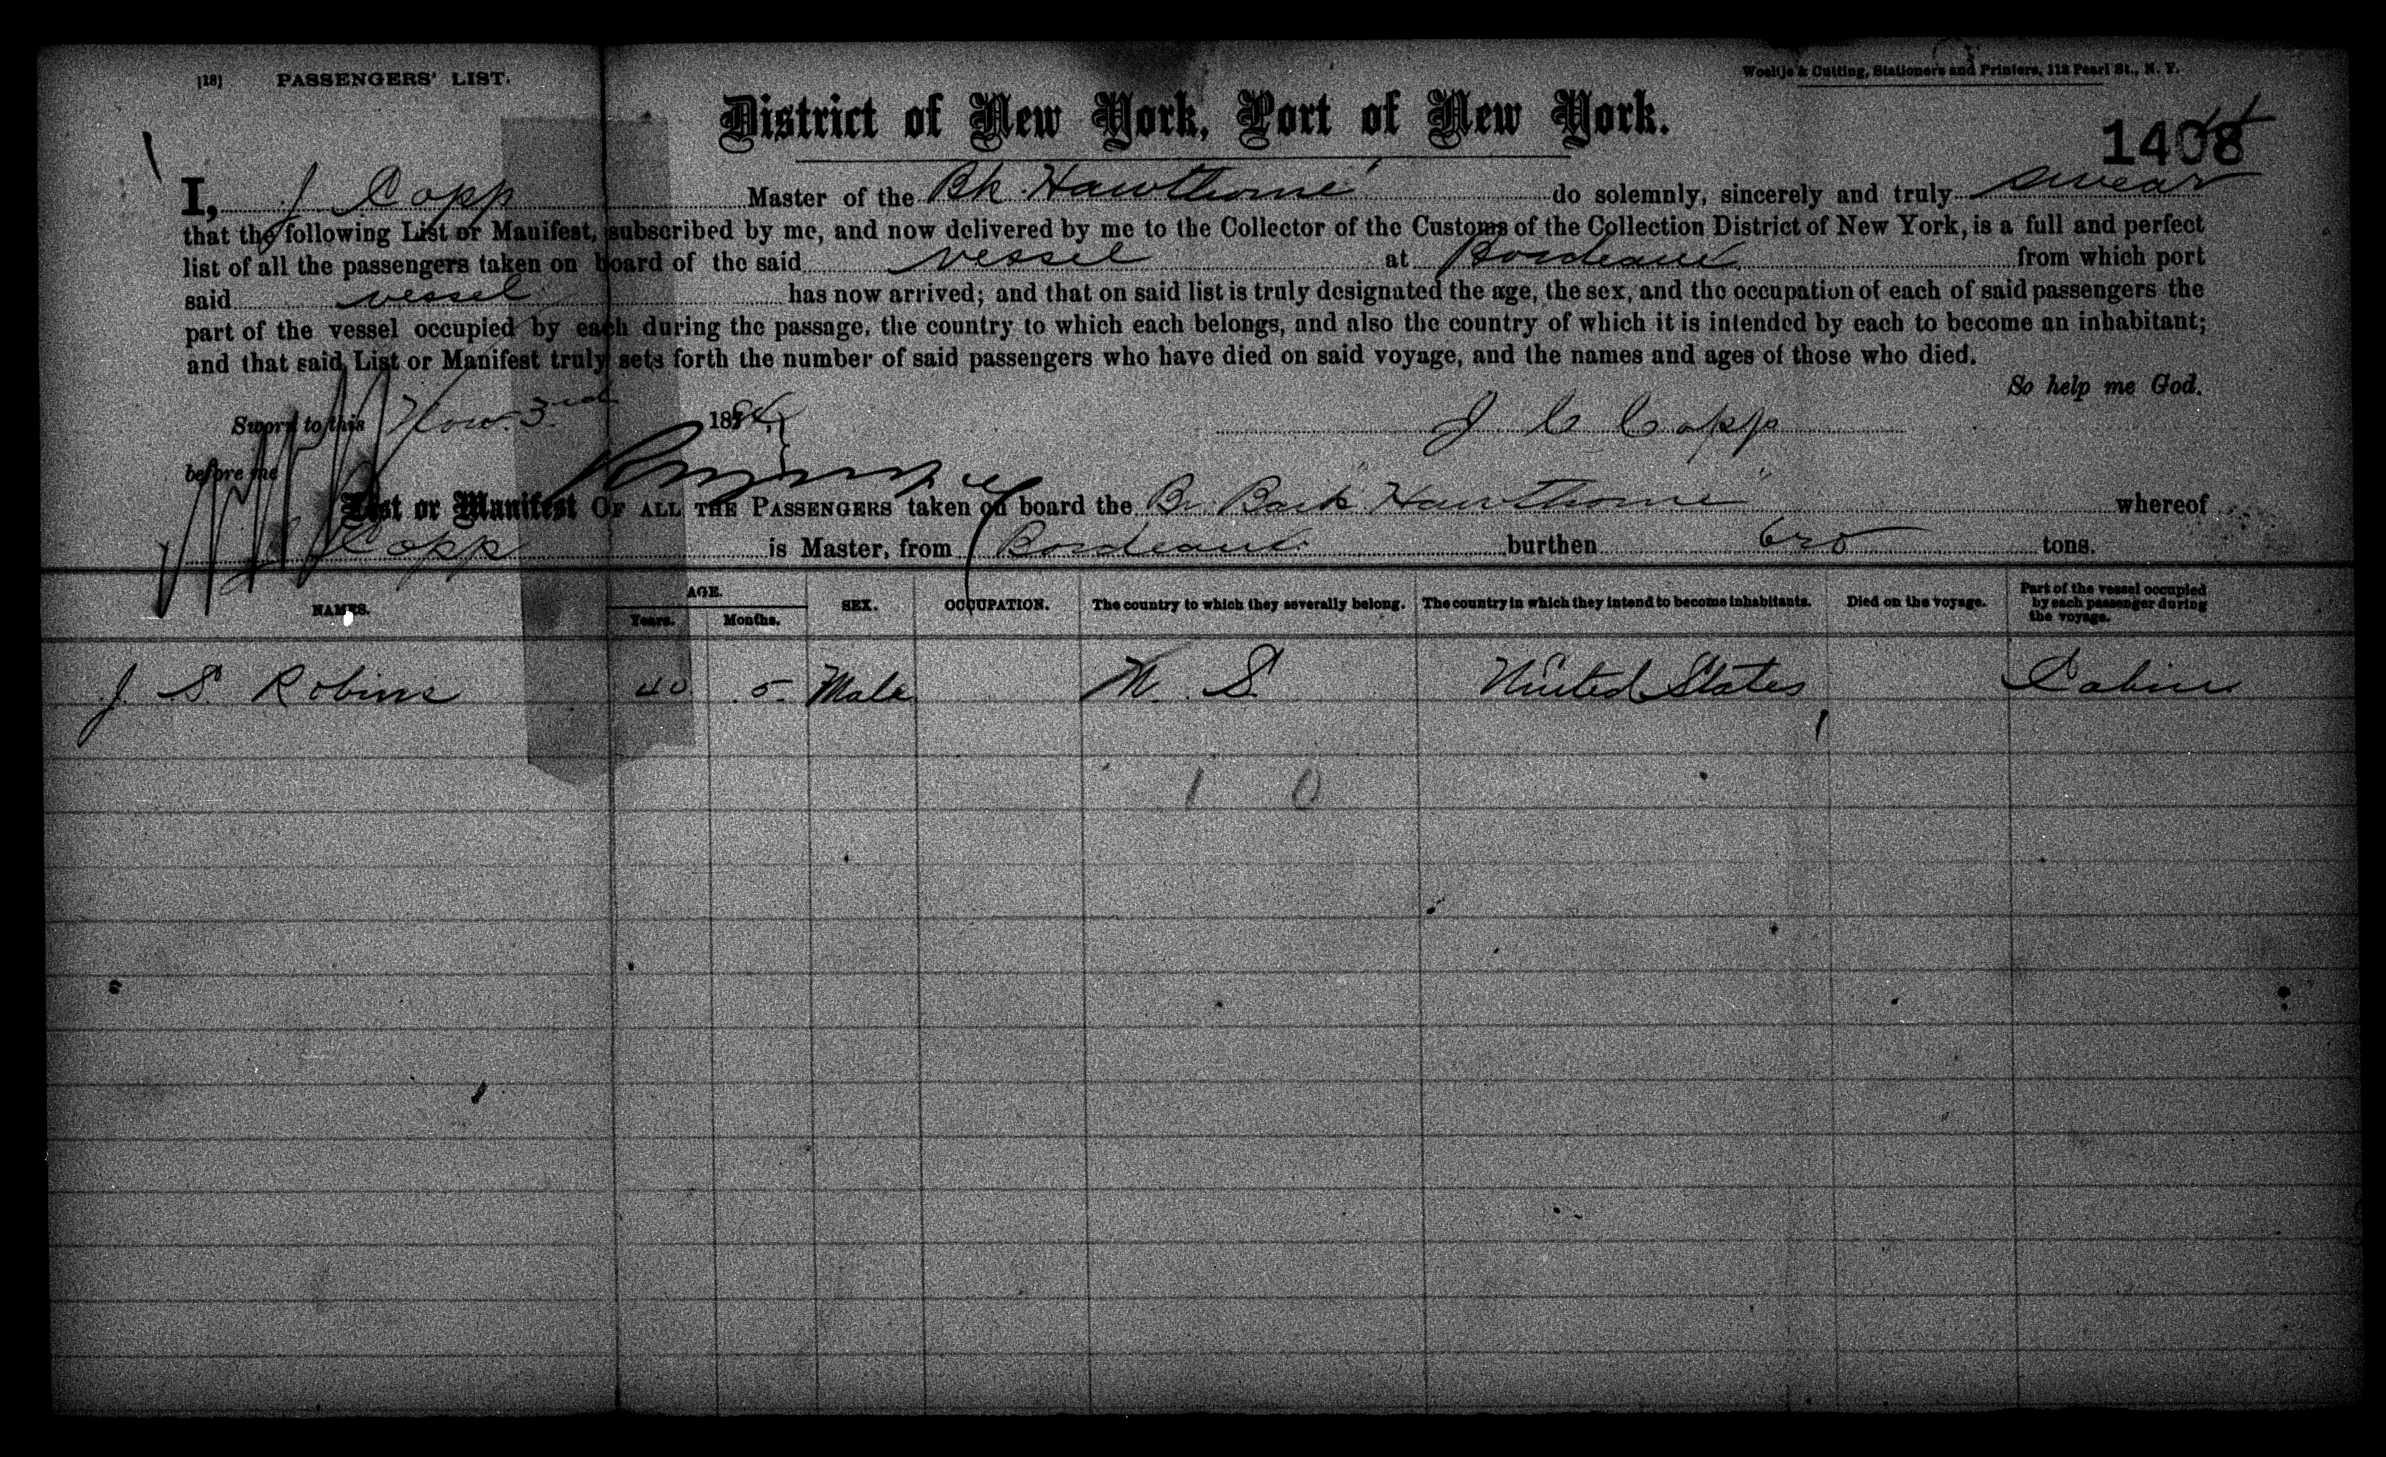 [18] PASSENGERS' LIST.
Woeltje & Cutting, Stationers and Printers, 112 Pearl St., N. Y.
District of New York, Port of New York.
1408
I, J Copp Master of the Bk "Hawthorne" do solemnly, sincerely and truly swear
that the following List or Manifest, subscribed by me, and now delivered by me to the Collector of the Customs of the Collection District of New York, is a full and perfect
list of all the passengers taken on board of the said vessel at Bordeaux from which port
said vessel has now arrived; and that on said list is truly designated the age, the sex, and the occupation of each of said passengers the
part of the vessel occupied by each during the passage, the country to which each belongs, and also the country of which it is intended by each to become an inhabitant;
and that said List or Manifest truly sets forth the number of said passengers who have died on said voyage, and the names and ages of those who died.
So help me God.
Sworn to this Nov. 3rd 1884,
J C Copp
before me
List or Manifest OF ALL THE PASSENGERS taken on board the Br Bark "Hawthorne" whereof
J Copp is Master, from Bordeaux burthen tons.
NAMES. AGE. Years. Months. SEX. OCCUPATION. The country to which they severally belong. The country in which they intend to become inhabitants. Died on the voyage. Part of the vessel occupied by each passenger during the voyage.
J. S. Robins 40 5 Male U. S. United States Cabin
1 0